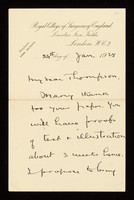 Royal College of Surgeons of England
Lincoln's Inn Fields,
London W.C.2
Jan. 1925
My dear Thompson,
Many thanks
for your paper. You
will have proofs
of text & illustration
about 3 weeks hence.
I propose to bring